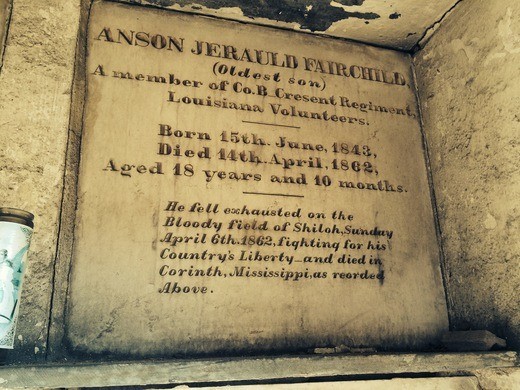 ANSON JERAULD FAIRCHILD
(Oldest son)
A member of Co.B. Cresent Regiment,
Louisiana Volunteers.
Born 15th. June, 1843,
Died 14th. April, 1862,
Aged 18 years and 10 months.
He fell exhausted on the
Bloody field of Shiloh, Sunday
April 6th. 1862, fighting for his
Country's Liberty_and died in
Corinth, Mississippi, as reorded
Above.